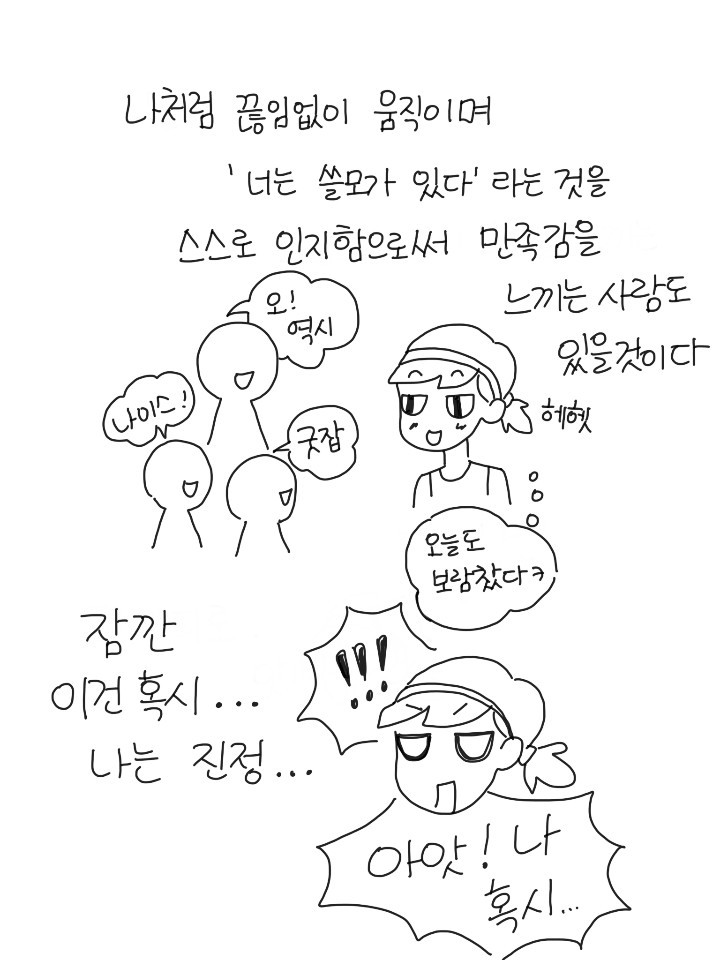 나처럼 끊임없이 움직이며
'너는 쓸모가 있다' 라는 것을
스스로 인지함으로써 만족감을
느끼는 사람도
있을것이다
오!
역시
나이스!
굿잡
헤헷
오늘도
보람찼다ㅋ
잠깐
이건 혹시...
나는 진정...
!!!
아앗! 나
혹시...